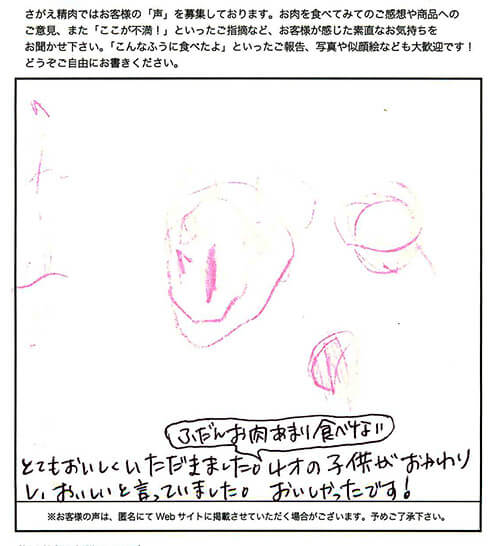 さがえ精肉ではお客様の「声」を募集しております。お肉を食べてみてのご感想や商品への
ご意見、また「ここが不満!」といったご指摘など、お客様が感じた素直なお気持ちを
お聞かせ下さい。「こんなふうに食べたよ」といったご報告、写真や似顔絵なども大歓迎です!
どうぞご自由にお書きください。
ふだんお肉あまり食べない
とてもおいしくいただきました。4才の子供がおかわり
し、おいしいと言っていました。 おいしかったです!
※お客様の声は、匿名にてWebサイトに掲載させていただく場合がございます。予めご了承下さい。